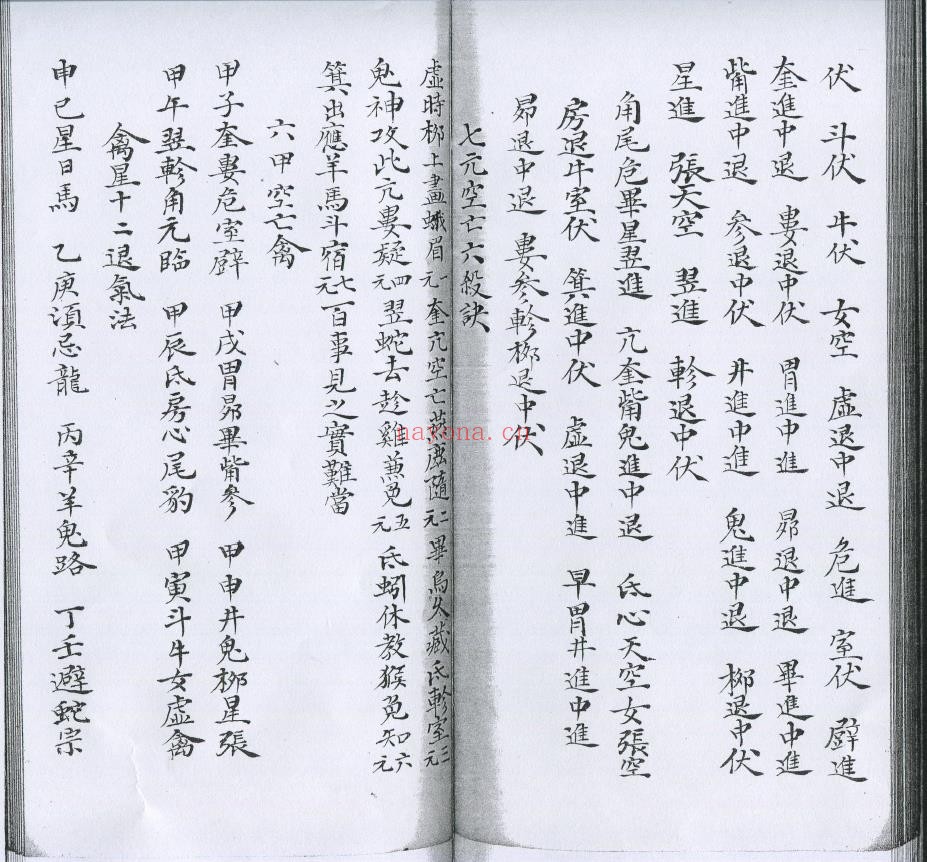 伏　斗伏　牛伏　女空　虛退中退　危進　室伏　壁進
奎進中退　婁退中伏　胃進中進　昴退中退　畢進中進
觜進中退　參退中伏　井進中進　鬼進中退　柳退中伏
星進　張天空　翌進　軫退中伏
角尾危畢星翌進　亢奎觜鬼進中退　氐心天空女張空
房退牛室伏　箕進中伏　虛退中進　早胃井進中進
昴退中退　婁參軫柳退中伏
七元空亡六殺訣
虛時柳上畫蛾眉一元　奎亢空亡鹿隨二元　畢烏久藏氐軫室三元
鬼神攻此亢婁疑四元　翌蛇去趁雞蕉兔五元　氐蚓休教猴兔知六元
箕出應羊馬斗宿七元百事見之實難當
六甲空亡禽
甲子奎婁危室壁　甲戌胃昴畢觜參　甲申井鬼柳星張
甲午翌軫角亢臨　甲辰氐房心尾豹　甲寅斗牛女虛禽
禽星十二退氣法
申巳星日馬　乙庚須忌龍　丙辛羊鬼路　丁壬避蛇宗
nayona.cn